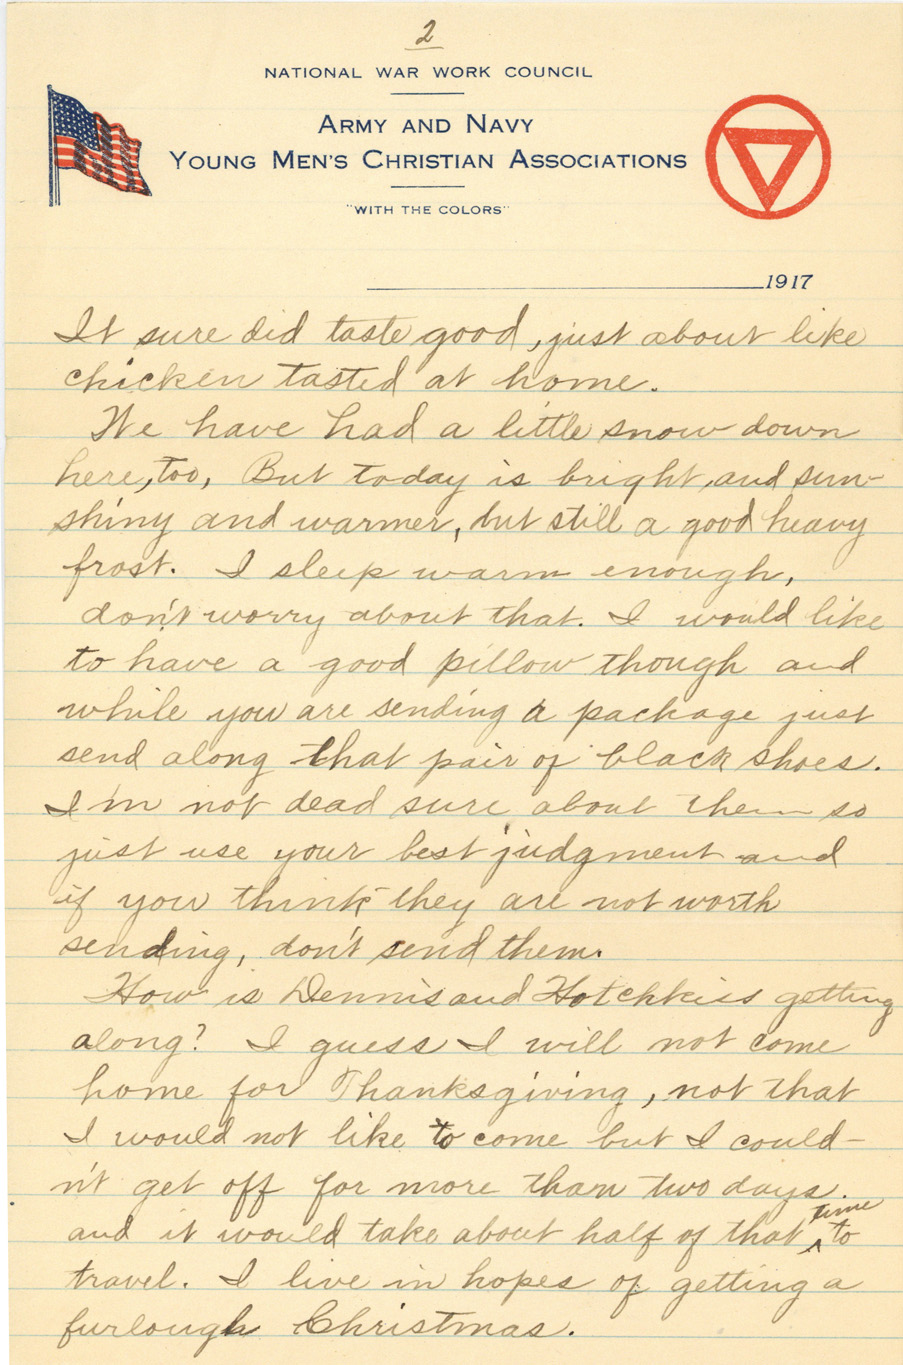 2
NATIONAL WAR WORK COUNCIL
ARMY AND NAVY
YOUNG MEN'S CHRISTIAN ASSOCIATIONS
"WITH THE COLORS"
1917
It sure did taste good, just about like
chicken tasted at home.
We have had a little snow down
here, too, But today is bright, and sun-
shiny and warmer, but still a good heavy
frost. I sleep warm enough,
don't worry about that. I would like
to have a good pillow though and
while you are sending a package just
send along that pair of black shoes.
I'm not dead sure about them so
just use your best judgment and
if you think they are not worth
sending, don't send them.
How is Dennis and Hotchkiss getting
along? I guess I will not come
home for Thanksgiving, not that
I would not like to come but I could-
n't get off for more than two days.
and it would take about half of that time to
travel. I live in hopes of getting a
furlough Christmas.